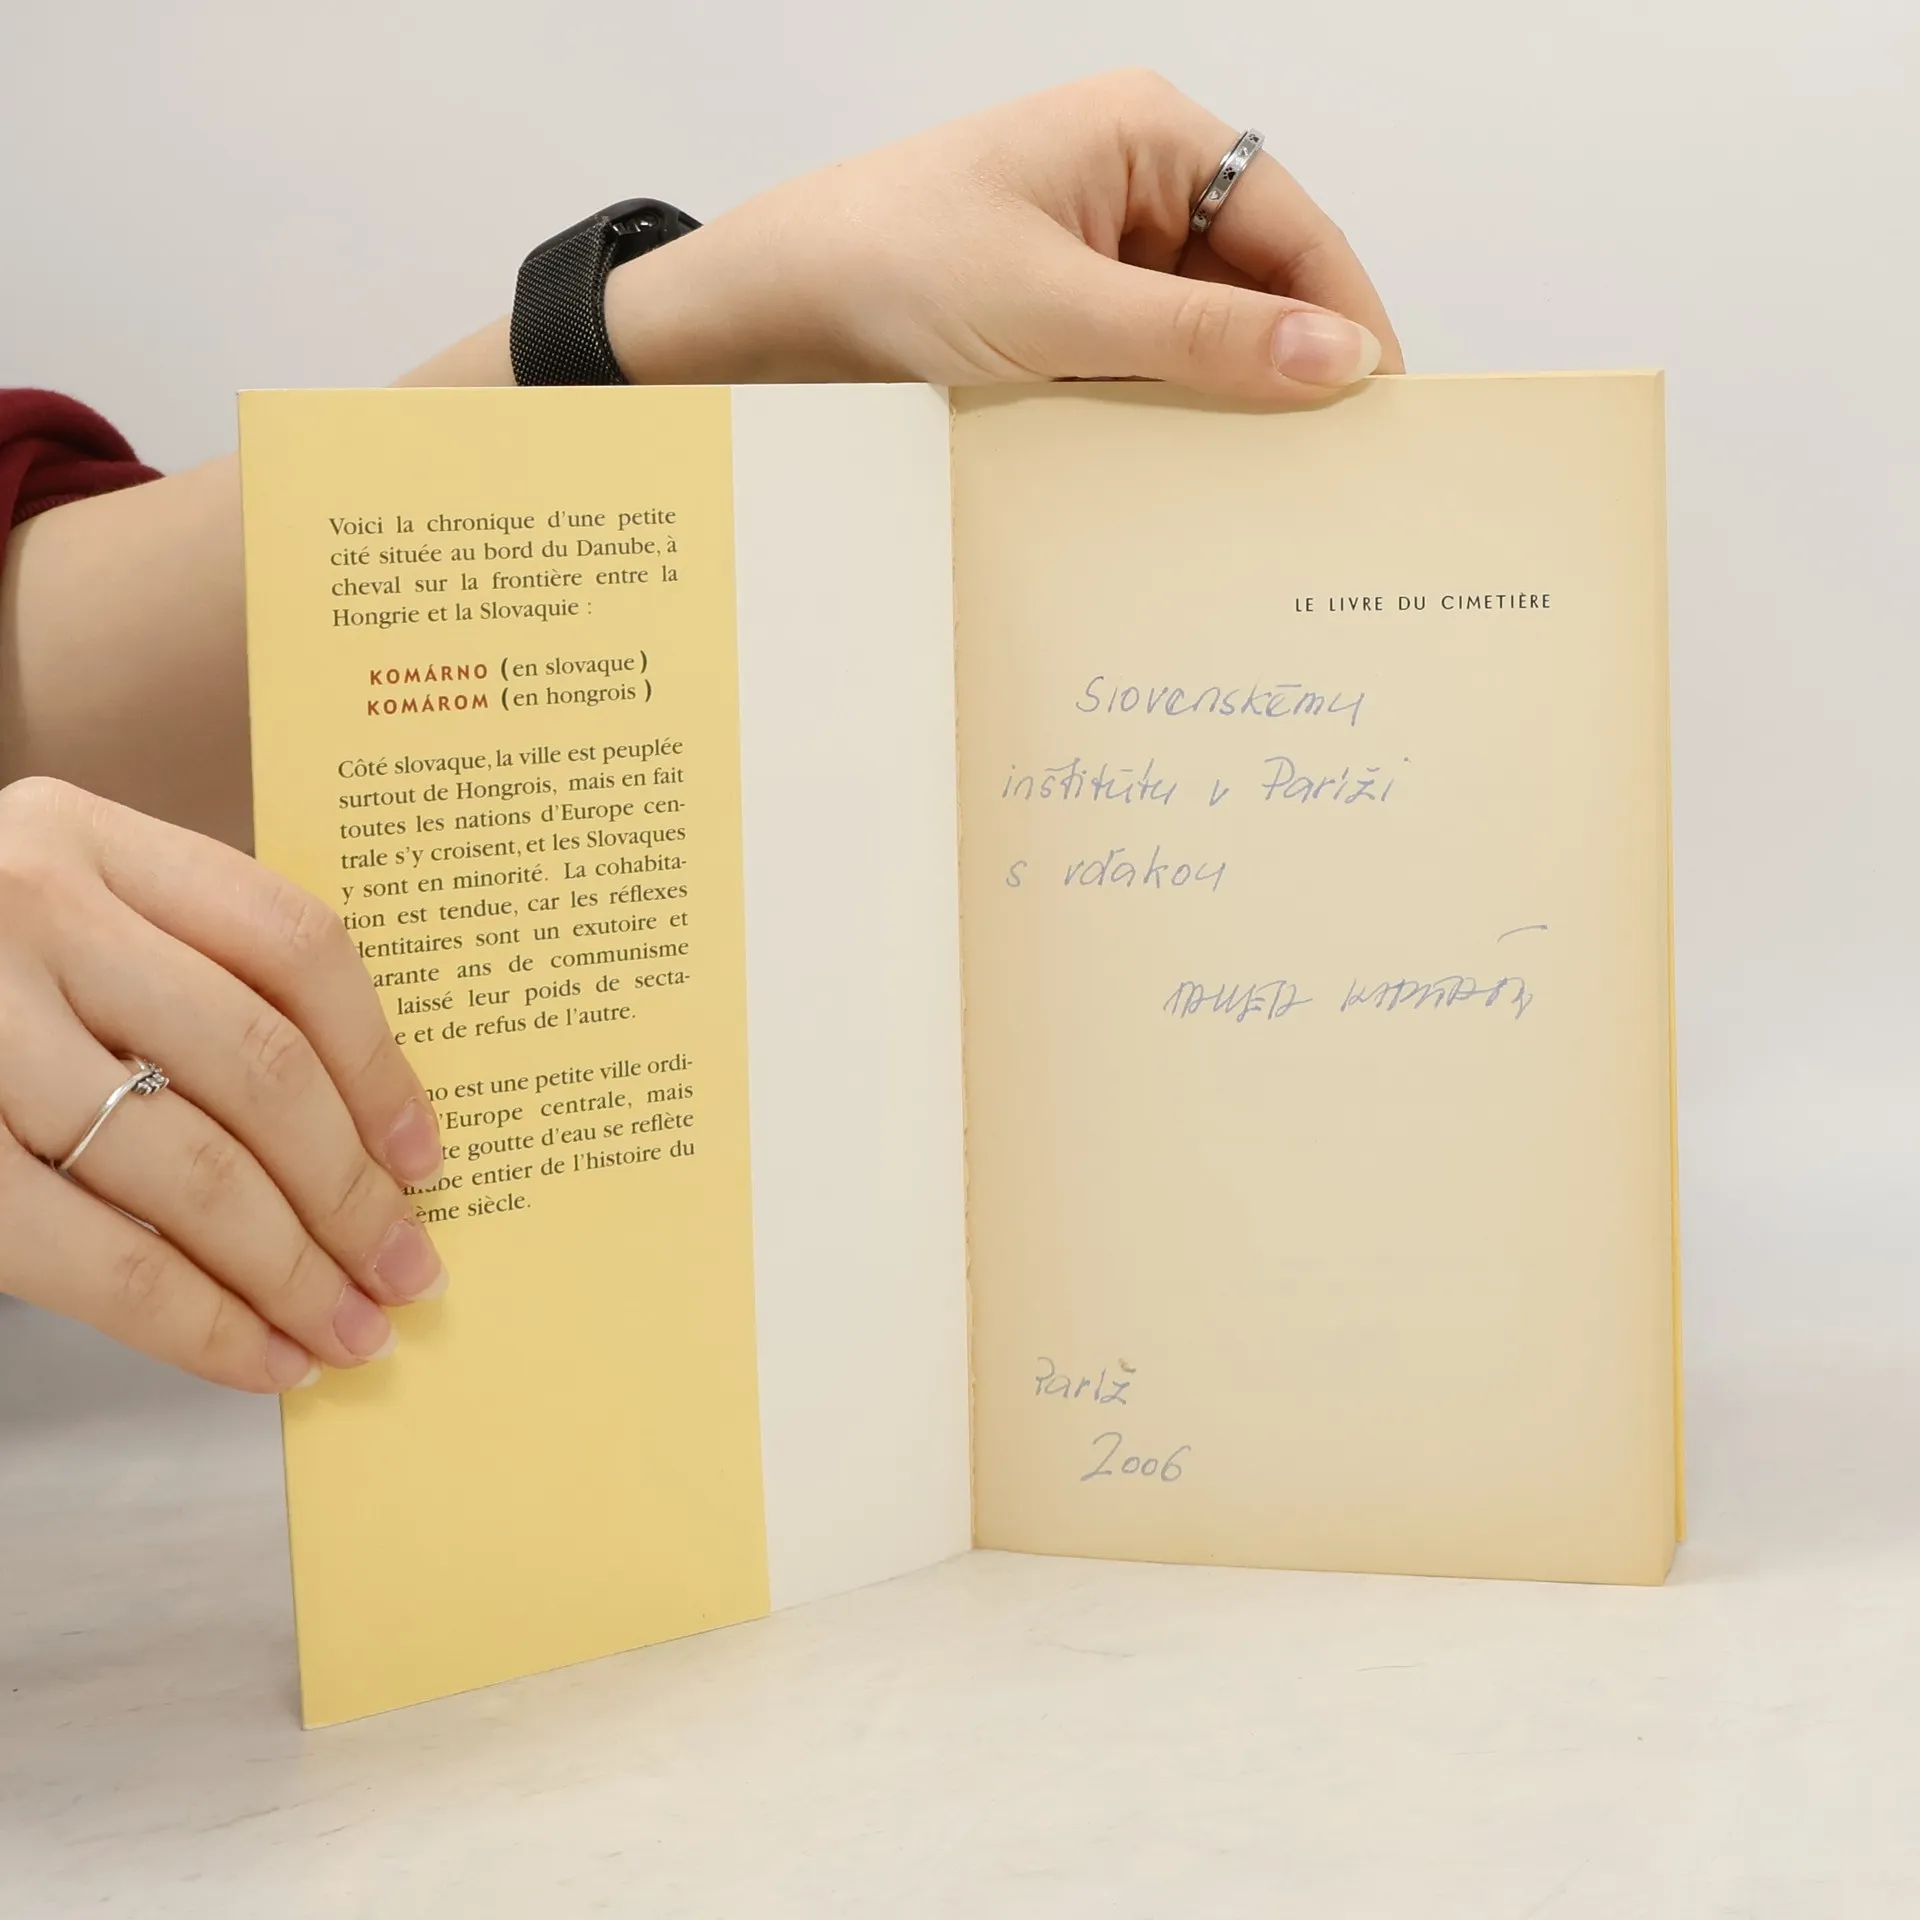 Voici la chronique d'une petite
cité située au bord du Danube, à
cheval sur la frontière entre la
Hongrie et la Slovaquie :
KOMÁRNO (en slovaque)
KOMÁROM (en hongrois)
Côté slovaque, la ville est peuplée
surtout de Hongrois, mais en fait
toutes les nations d'Europe cen-
trale s'y croisent, et les Slovaques
y sont en minorité. La cohabita-
tion est tendue, car les réflexes
dentitaires sont un exutoire et
arante ans de communisme
laissé leur poids de secta-
e et de refus de l'autre.
no est une petite ville ordi-
'Europe centrale, mais
te goutte d'eau se reflète
be entier de l'histoire du
ème siècle.
LE LIVRE DU CIMETIÈRE
Slovenskému
inštitútu v Paríži
s vďakou
Paríž
2006